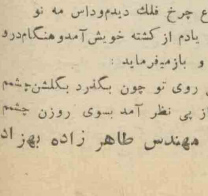 ع چرخ فلك ديدم وداس مه نو
يادم از كشته خويش آمد و هنگام درو
و باز ميفرمايد :
روى تو چون بگذرد بگلشن چشم
از پى نظر آمد بسوى روزن چشم
مهندس طاهر زاده بهزاد